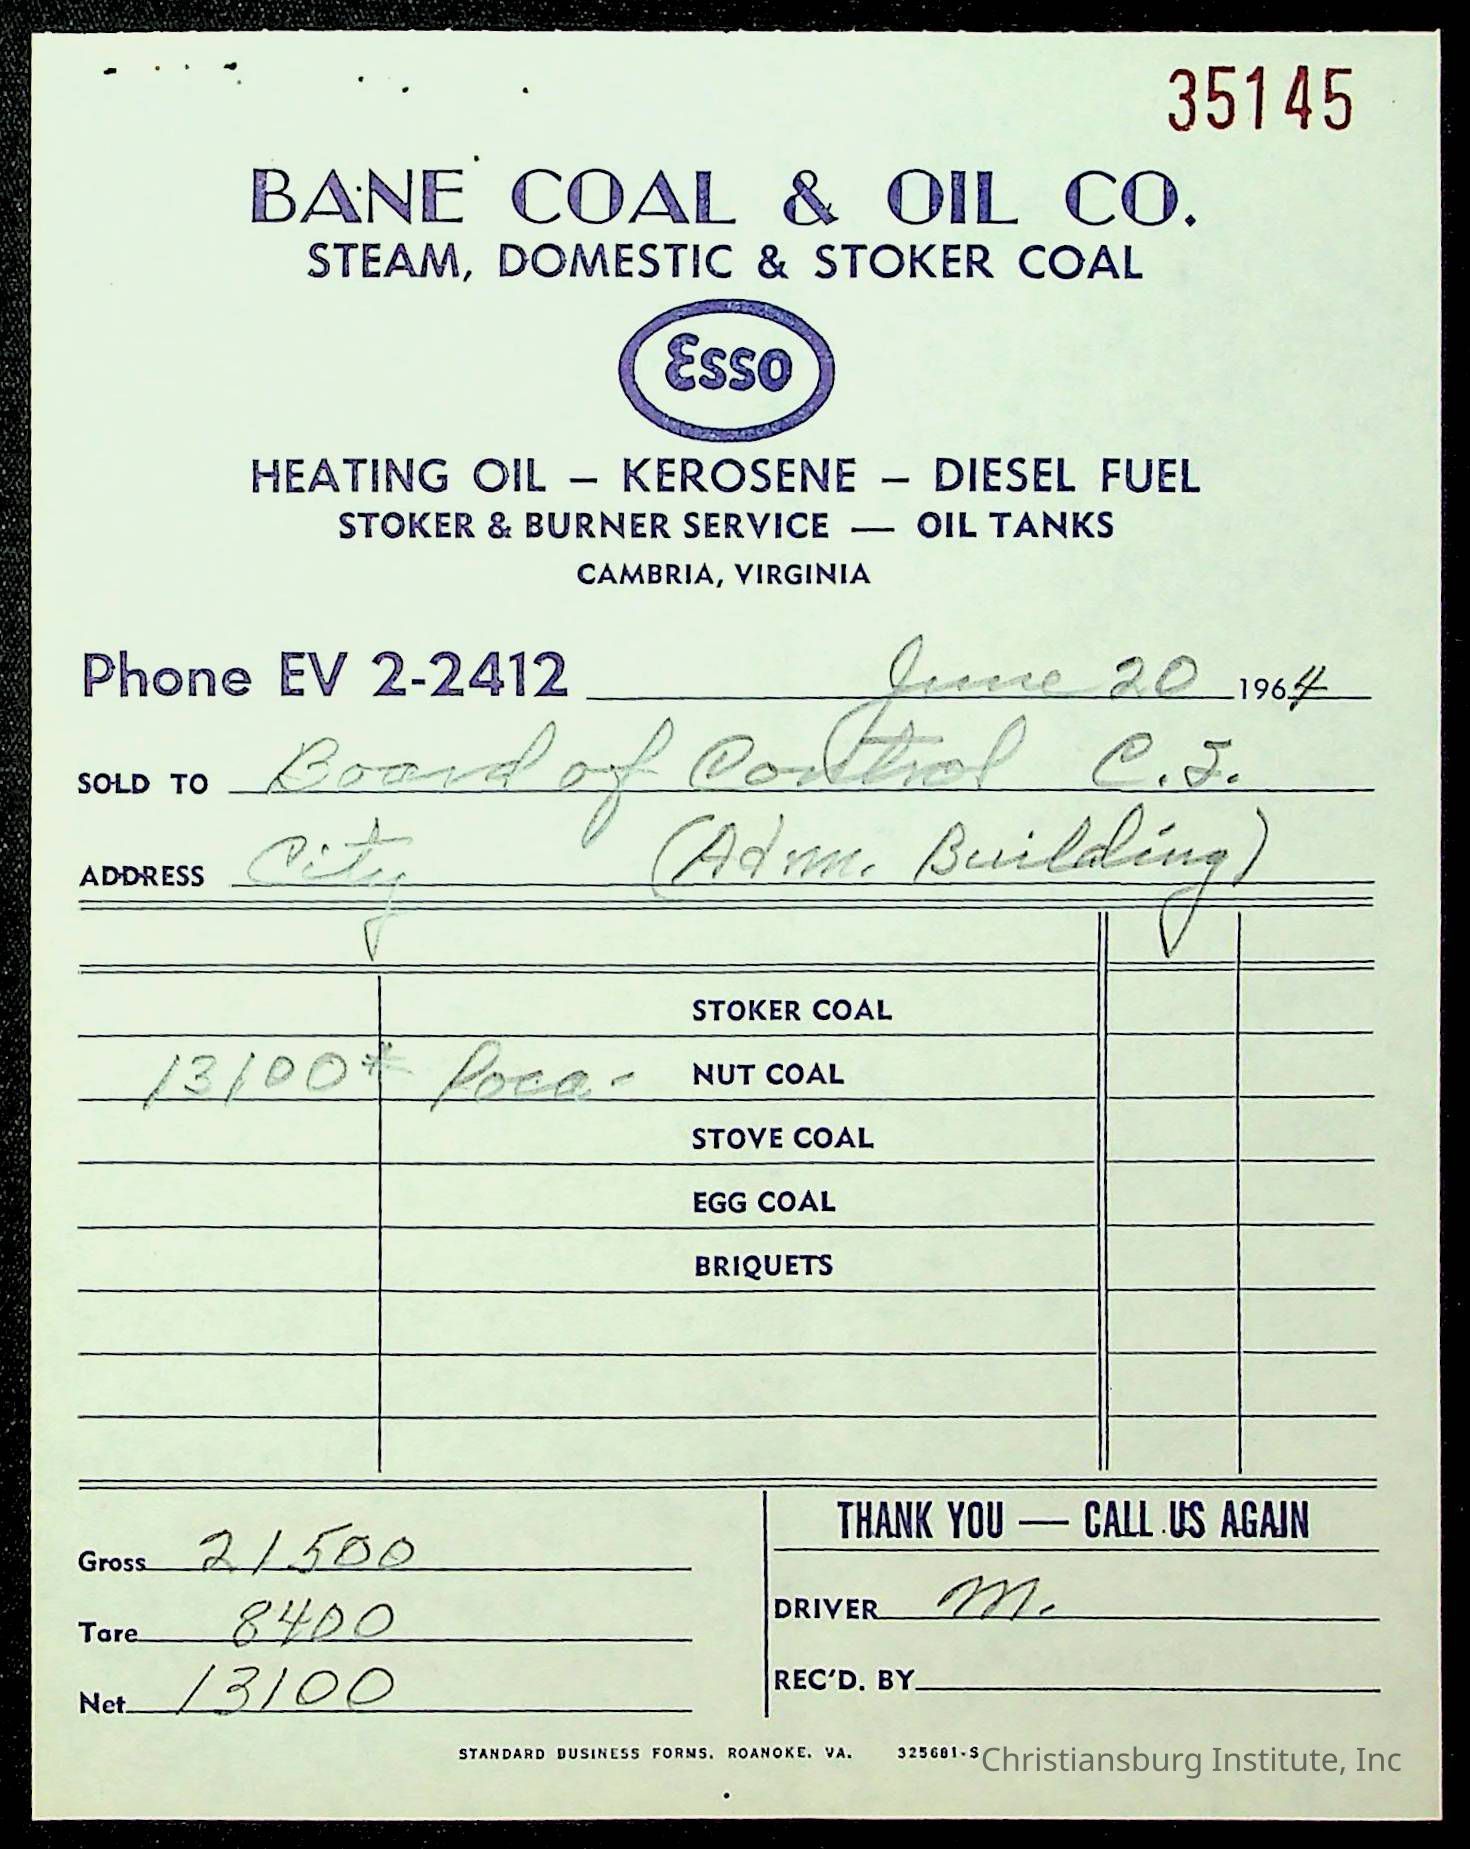 35145
BANE COAL & OIL CO.
STEAM, DOMESTIC & STOKER COAL
Esso
HEATING OIL – KEROSENE – DIESEL FUEL
STOKER & BURNER SERVICE — OIL TANKS
CAMBRIA, VIRGINIA
Phone EV 2-2412 June 20 1964
SOLD TO Board of Control C.I.
ADDRESS City (Adm. Building)
STOKER COAL
13100# Poca- NUT COAL
STOVE COAL
EGG COAL
BRIQUETS
Gross 21500
Tare 8400
Net 13100
THANK YOU — CALL US AGAIN
DRIVER M.
REC'D. BY
STANDARD BUSINESS FORMS. ROANOKE. VA. 325681-S
Christiansburg Institute, Inc